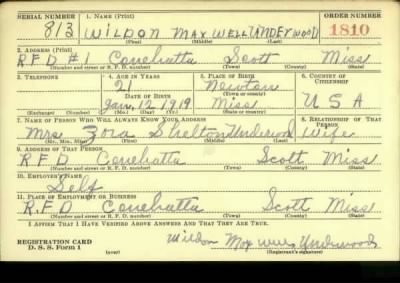 SERIAL NUMBER 1. NAME (Print) ORDER NUMBER
813 WILDON MAXWELL UNDERWOOD 1810
(First) (Middle) (Last)
2. ADDRESS (Print)
RFD #1 Conehatta Scott Miss
(Number and street or R. F. D. number) (Town) (County) (State)
3. TELEPHONE 4. AGE IN YEARS 5. PLACE OF BIRTH 6. COUNTRY OF CITIZENSHIP
21 Newton
DATE OF BIRTH (Town or county)
Jan. 12 1919 Miss U S A
(Exchange) (No.) (Mo.) (Day) (Yr.) (State or country)
7. NAME OF PERSON WHO WILL ALWAYS KNOW YOUR ADDRESS 8. RELATIONSHIP OF THAT PERSON
Mrs Zora Shelton Underwood Wife
(Mr., Mrs., Miss) (First) (Middle) (Last)
9. ADDRESS OF THAT PERSON
RFD Conehatta Scott Miss
(Number and street or R. F. D. number) (Town) (County) (State)
10. EMPLOYER'S NAME
Self
11. PLACE OF EMPLOYMENT OR BUSINESS
R.F.D Conehatta Scott Miss
(Number and street or R. F. D. number) (Town) (County) (State)
I AFFIRM THAT I HAVE VERIFIED ABOVE ANSWERS AND THAT THEY ARE TRUE.
REGISTRATION CARD
D. S. S. Form 1 (over) Wildon Underwood
(Registrant's signature)